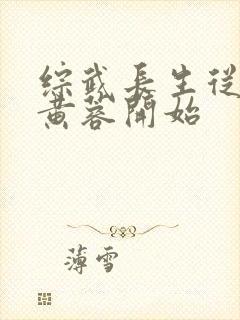 综武长生從
黄蓉開始
薄雪